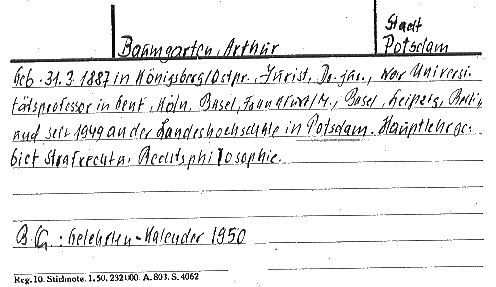 Stadt
Baumgarten, Arthur Potsdam
Geb. 31.3.1887 in Königsberg/Ostpr. Jurist, Dr. jur., war Universi-
tätsprofessor in Genf, Köln, Basel, Frankfurt/M., Basel, Leipzig, Berlin
und seit 1949 an der Landeshochschule in Potsdam. Hauptlehrge-
biet Strafrecht u. Rechtsphilosophie.
B.G.: Gelehrten-Kalender 1950
Reg. 10. Stichnote. 1. 50. 232000. A. 803. S. 4062